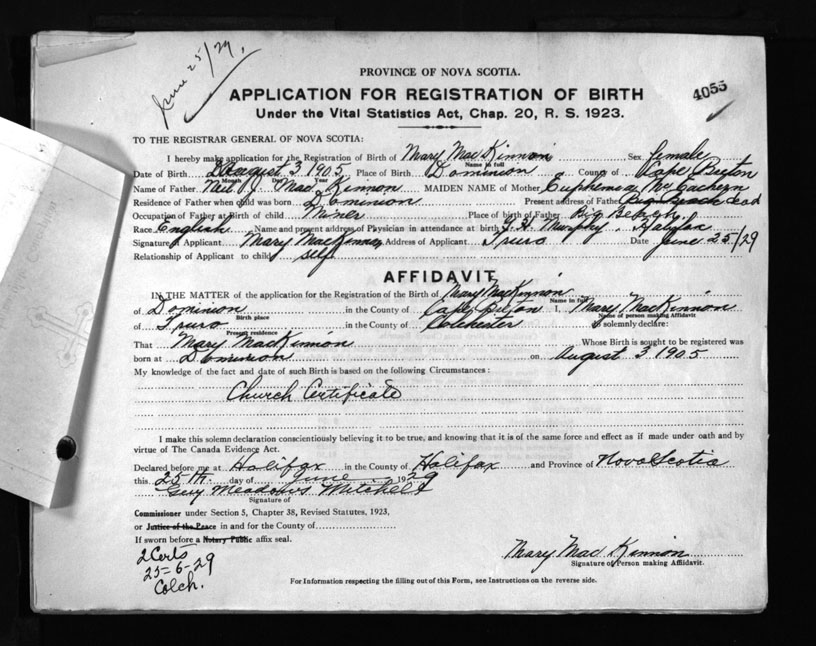 June 25/29.
4055
PROVINCE OF NOVA SCOTIA.
APPLICATION FOR REGISTRATION OF BIRTH
Under the Vital Statistics Act, Chap. 20, R. S. 1923.
TO THE REGISTRAR GENERAL OF NOVA SCOTIA:
I hereby make application for the Registration of Birth of Mary MacKinnon Sex female
Name in full
Date of Birth August 3 1905 Place of Birth Dominion County of Cape Breton
Month Day Year
Name of Father Neil J. MacKinnon MAIDEN NAME of Mother Euphemia McEachern
Residence of Father when child was born Dominion Present address of Father dead
Occupation of Father at Birth of child Miner Place of birth of Father Big Beach
Race English Name and present address of Physician in attendance at birth Murphy, Halifax
Signature of Applicant Mary MacKinnon Address of Applicant Truro Date June 25/29
Relationship of Applicant to child self
AFFIDAVIT
IN THE MATTER of the application for the Registration of the Birth of Mary MacKinnon
Name in full
of Dominion in the County of Cape Breton I, Mary MacKinnon
Birth place Name of person making Affidavit
of Truro in the County of Colchester do solemnly declare:
Present residence
That Mary MacKinnon Whose Birth is sought to be registered was
born at Dominion on August 3 1905
My knowledge of the fact and date of such Birth is based on the following Circumstances:
Church Certificate
I make this solemn declaration conscientiously believing it to be true, and knowing that it is of the same force and effect as if made under oath and by
virtue of The Canada Evidence Act.
Declared before me at Halifax in the County of Halifax and Province of Nova Scotia
this 25th day of June 1929
Guy Meadows Mitchell
Signature of
Commissioner under Section 5, Chapter 38, Revised Statutes, 1923,
or Justice of the Peace in and for the County of
If sworn before a Notary Public affix seal.
2 Certs
25-6-29
Colch.
Mary MacKinnon
Signature of Person making Affidavit.
For Information respecting the filling out of this Form, see Instructions on the reverse side.